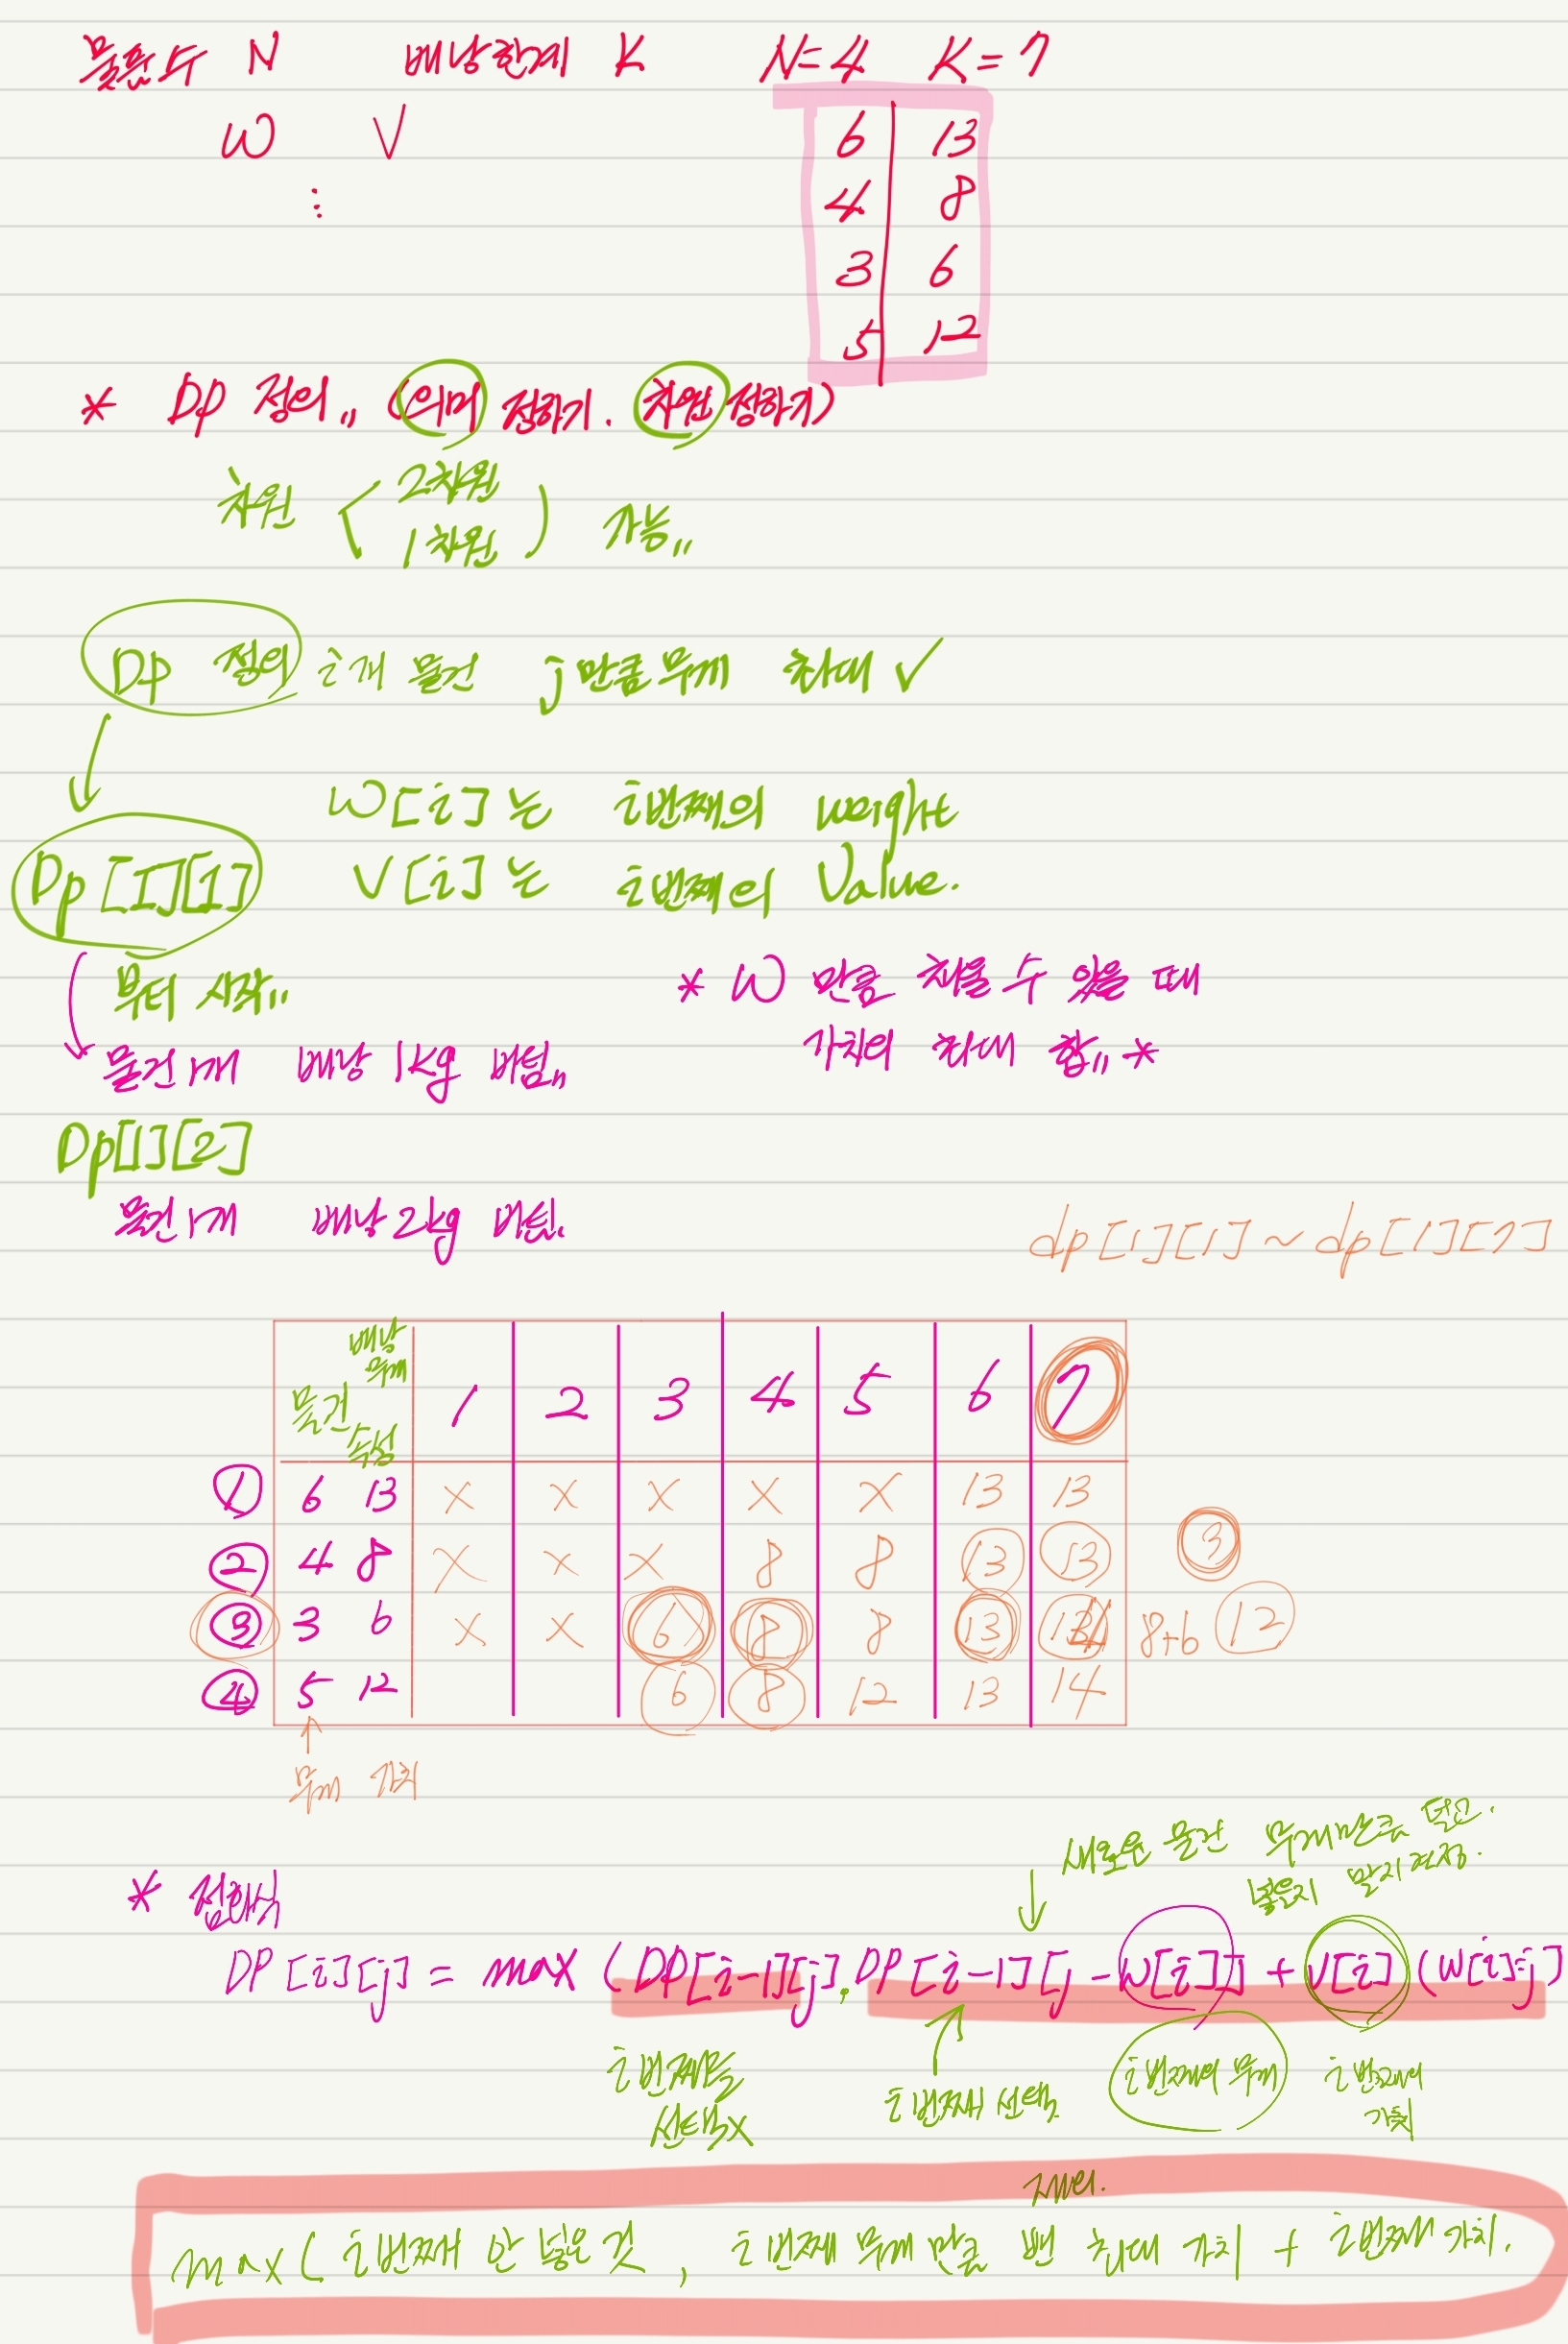 물품 수 N 배낭한계 K N=4 K=7
W V
⋮
6 13
4 8
3 6
5 12
* DP 정의,, (의미 정하기. 차원 정하기)
차원 2차원
1차원 가능,,
DP 정의 i개 물건 j만큼무게 최대 ✓
W[i]는 i번째의 weight
Dp[1][1] V[i]는 i번째의 Value.
부터 시작,,
* W 만큼 채울 수 있을 때
가치의 최대 합,, *
물건1개 배낭 1kg 버팀,,
Dp[1][2]
물건1개 배낭2kg 버팀.
dp[1][1]~dp[1][7]
배낭
무게
물건
속성 1 2 3 4 5 6 7
① 6 13 X X X X X 13 13
② 4 8 X X X 8 8 13 13 3
③ 3 6 X X 6 8 8 13 14 8+6 12
④ 5 12 6 8 12 13 14
↑
무게 가치
새로운 물건 무게만큼 덜고.
넣을지 말지 결정.
* 점화식
DP[i][j] = max (DP[i-1][j], DP[i-1][j-W[i]] + V[i] (W[i]≤j)
i번째를
선택X
i번째 선택.
i번째의 무게
i번째의
가치
제외.
max( i번째 안 넣은 것, i번째 무게 만큼 뺀 최대 가치 + i번째 가치.